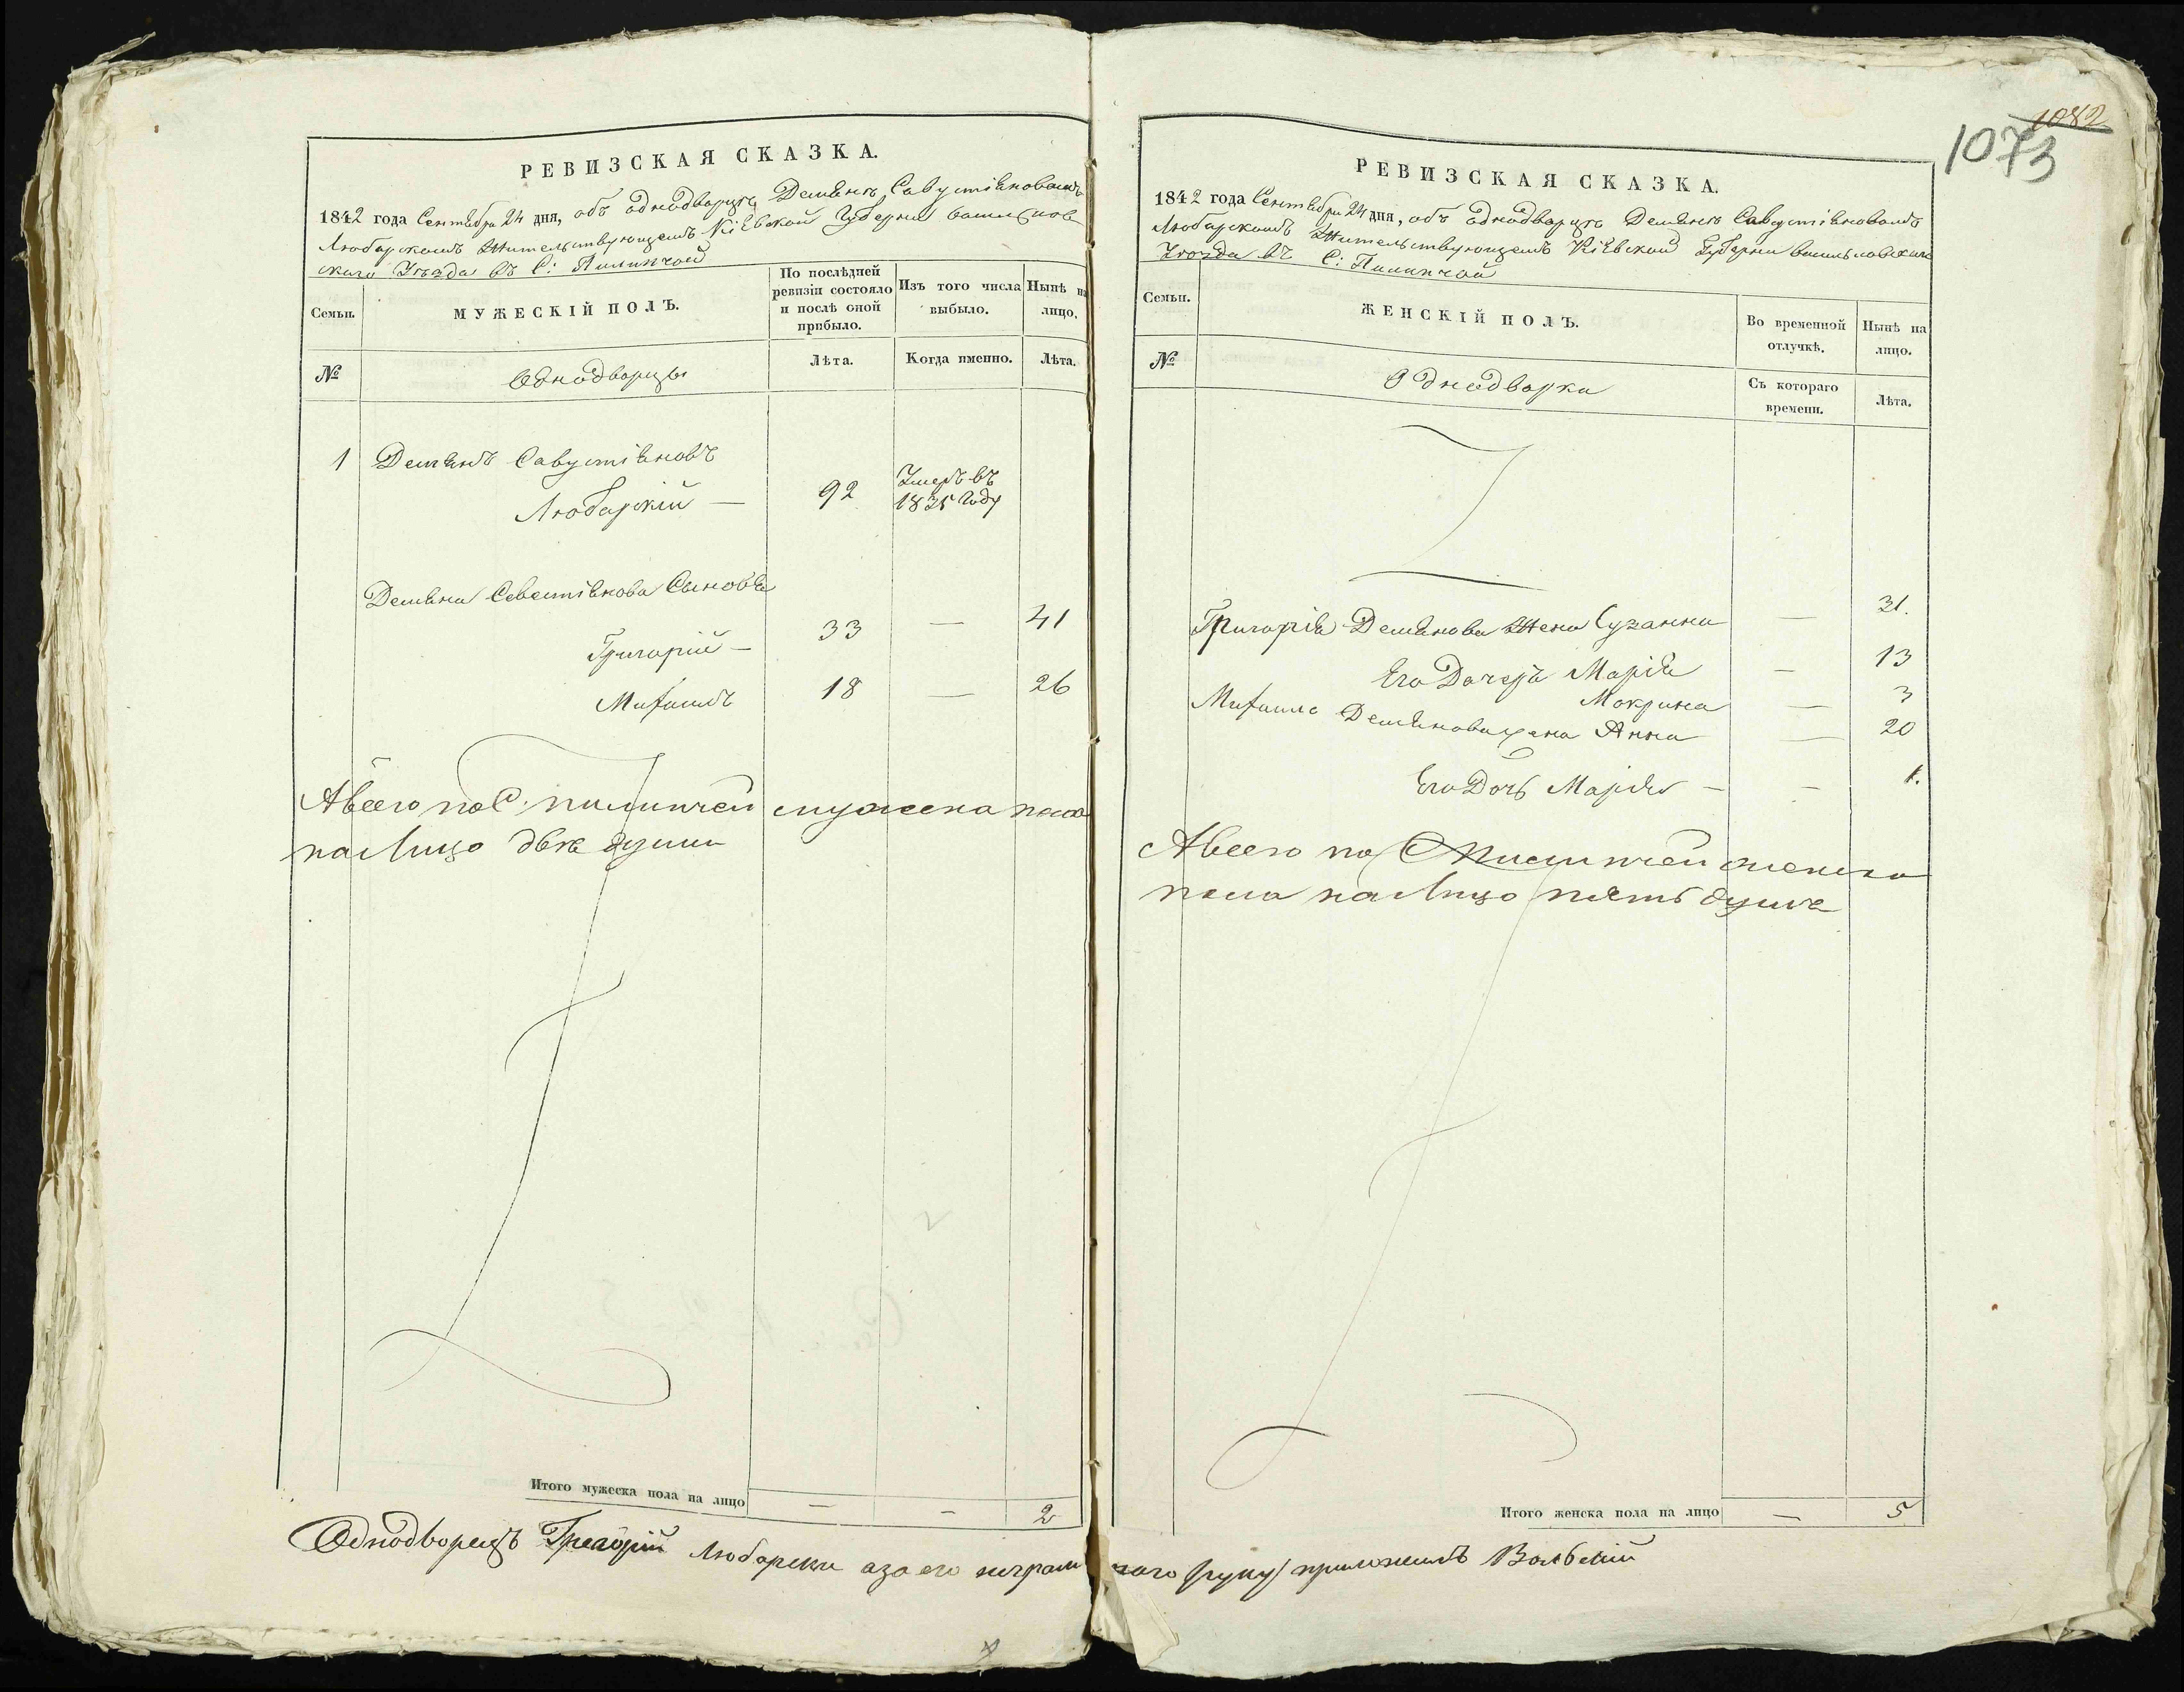 РЕВИЗСКАЯ СКАЗКА.
1842 года Сентября 24 дня, объ однодворцѣ Демянѣ Савустіяновомъ
Любарскомъ Жительствующемъ Кіевской Губерніи васильков
скаго Уѣзда въ С: Пилипчой
Семьи.
МУЖЕСКІЙ ПОЛЪ.
По послѣдней
ревизіи состояло
и послѣ оной
прибыло.
Изъ того числа
выбыло.
Нынѣ на
лицо.
№
Однодворцы
Лѣта.
Когда именно.
Лѣта.
1 Демянъ Савустіяновъ
Любарскій — 92 Умеръ въ
1835 году
Демяна Севестіянова Сыновья
Григорій — 33 — 41
Михаилъ 18 — 26
Авсего по С. пилипчей мужеска пола
на Лицо двѣ души
Итого мужеска пола на лицо — — 2
1082
1073
РЕВИЗСКАЯ СКАЗКА.
1842 года Сентября 24 дня, объ однодворцѣ Демянѣ Савустіяновомъ
Любарскомъ Жительствующемъ Кіевской Губерніи васильковскаго
Уѣзда въ С: Пилипчой
Семьи.
ЖЕНСКІЙ ПОЛЪ.
Во временной
отлучкѣ.
Нынѣ на
лицо.
№
Однодворка
Съ котораго
времени.
Лѣта.
Григорія Демянова Жена Сузанна — 31.
Его Дочери Марія — 13
Мокрина — 3
Михаила Демянова жена Анна — 20
Его Дочь Марія — — 1.
Авсего по С Пилипчей женска
пола на Лицо пять душъ
Итого женска пола на лицо — 5
Однодворецъ Григорій Любарски аза его неграмотнаго руку приложилъ